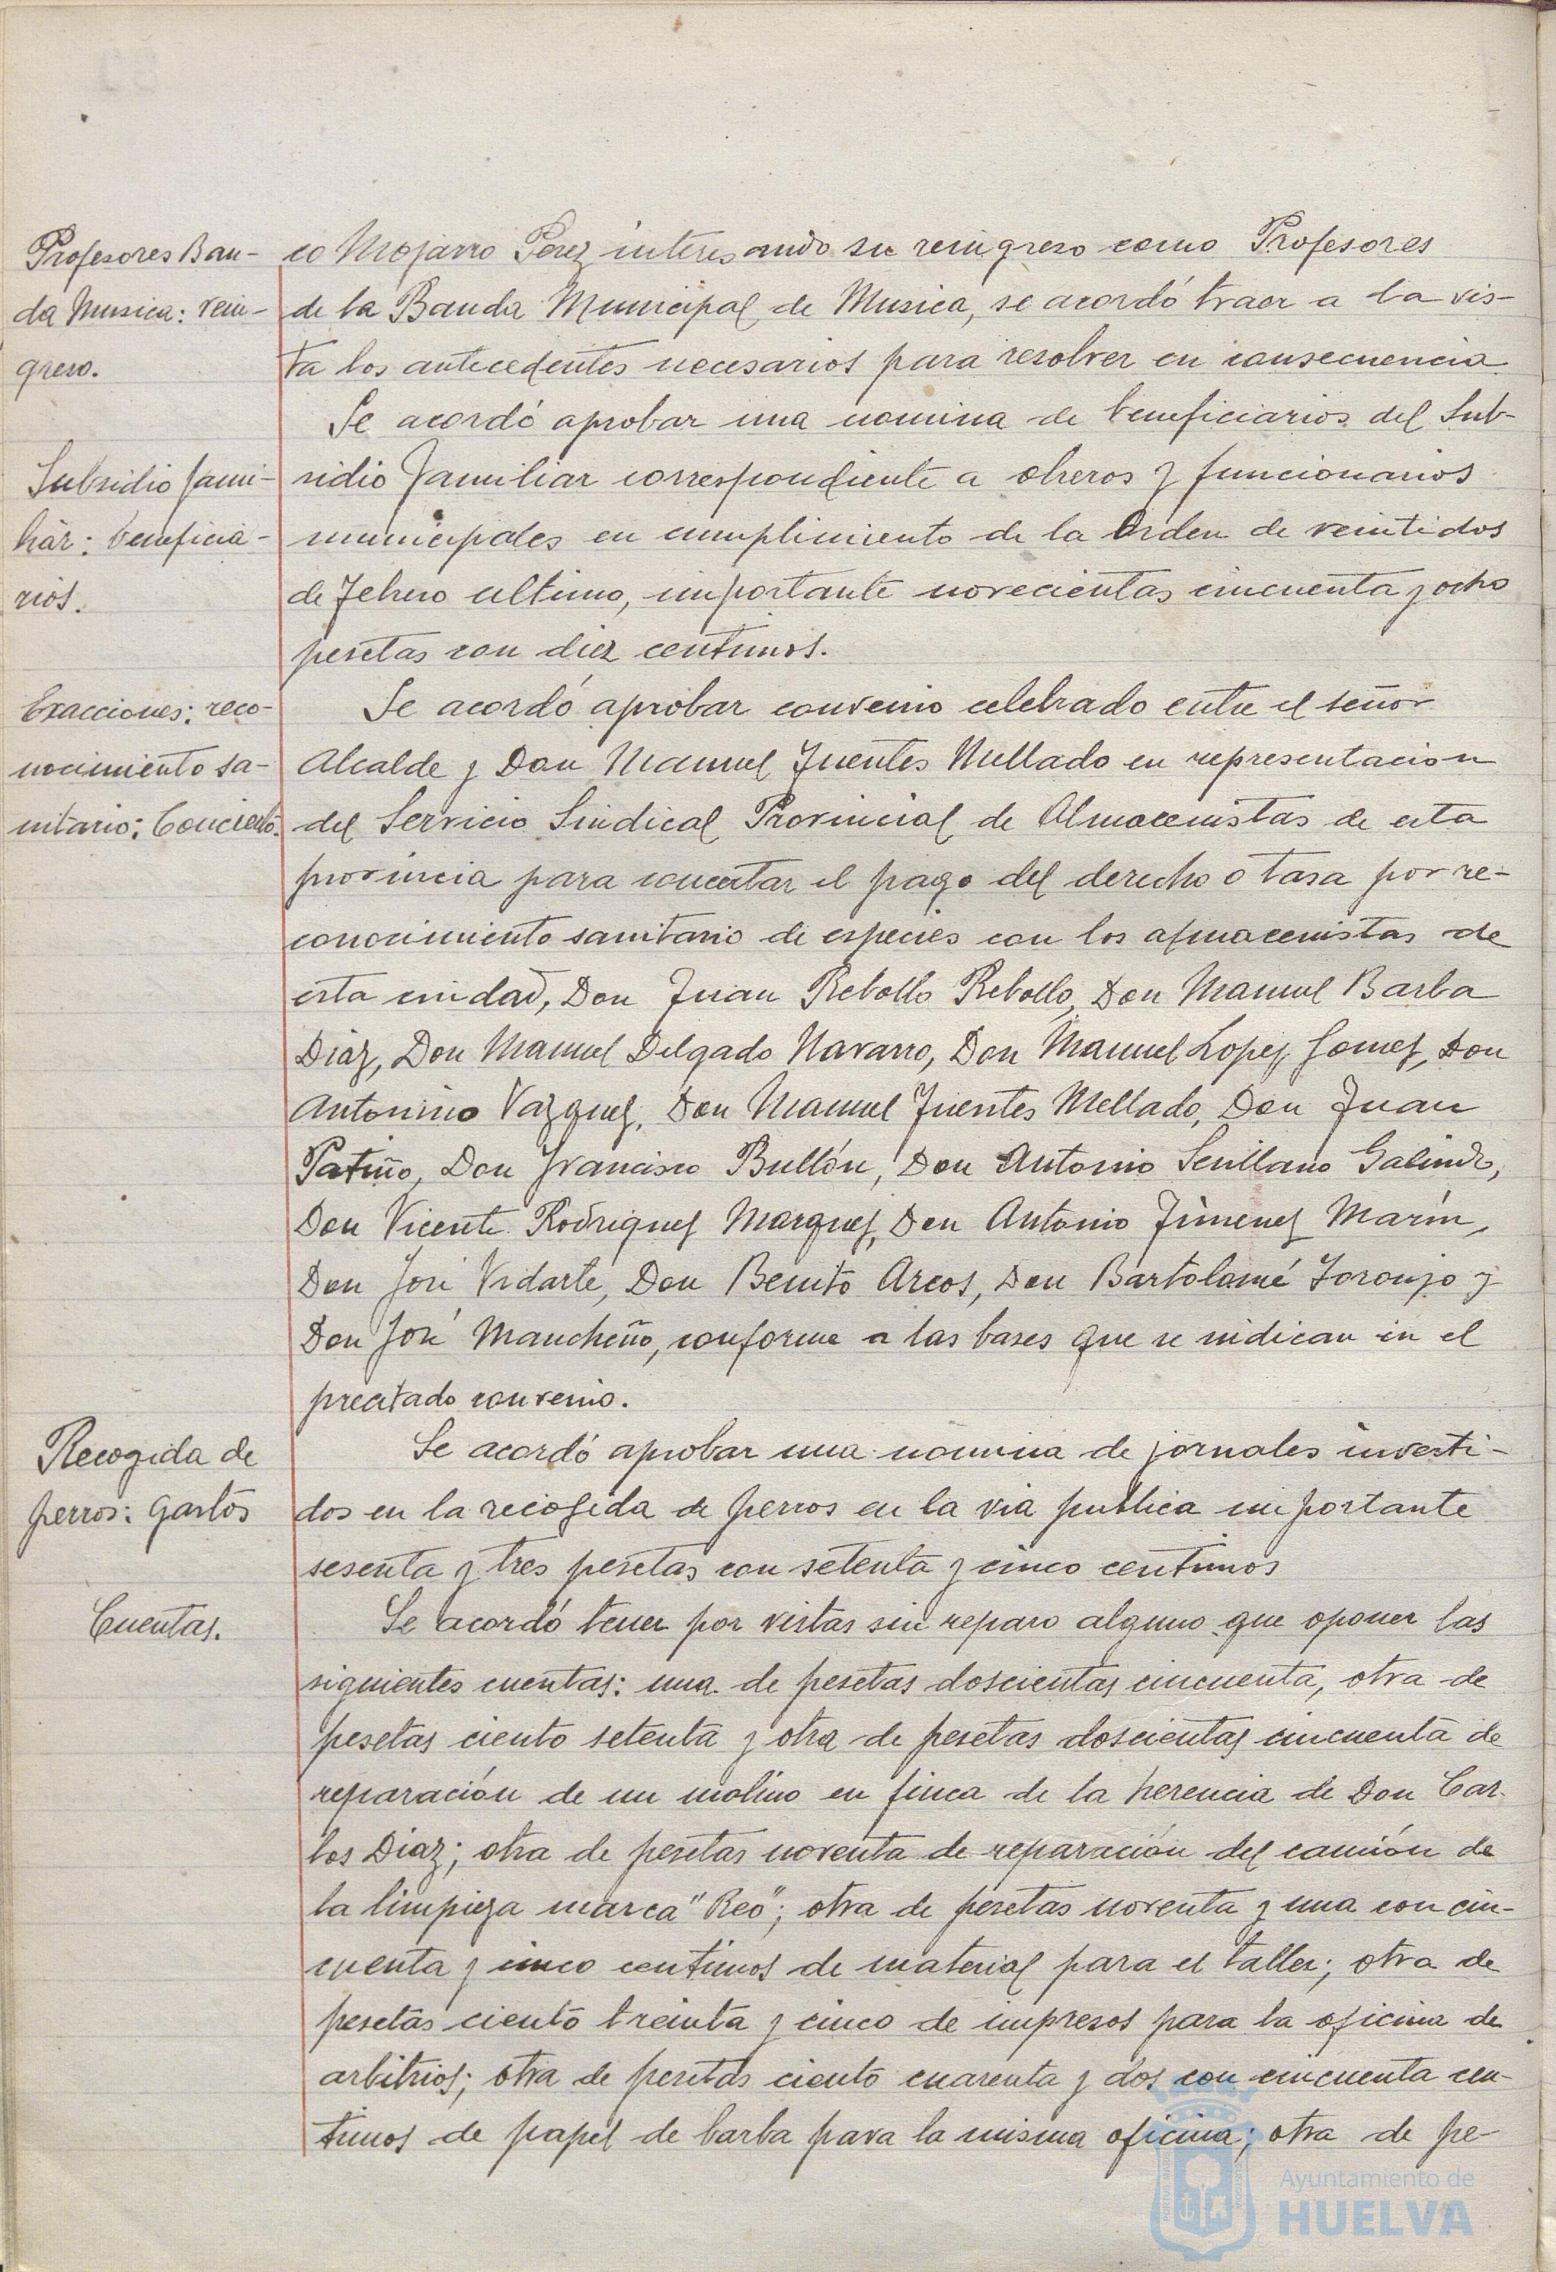 Profesores Ban-
da Musica: rein-
greso.
co Mojarro Perez interesando su reingreso como Profesores
de la Banda Municipal de Musica, se acordó traer a la vis-
ta los antecedentes necesarios para resolver en consecuencia
Se acordó aprobar una nomina de beneficiarios del Sub-
Subsidio fami-
liar: beneficia-
rios.
sidio Familiar correspondiente a obreros y funcionarios
municipales en cumplimiento de la Orden de veintidos
de Febrero ultimo, importante novecientas cincuenta y ocho
pesetas con diez centimos.
Exacciones: reco-
nocimiento sa-
nitario: Concierto.
Se acordó aprobar convenio celebrado entre el señor
Alcalde y Don Manuel Fuentes Mellado en representacion
del Servicio Sindical Provincial de Almacenistas de esta
provincia para concertar el pago del derecho o tasa por re-
conocimiento sanitario de especies con los almacenistas de
esta ciudad, Don Juan Rebollo Rebollo, Don Manuel Barba
Diaz, Don Manuel Delgado Navarro, Don Manuel Lopez Gomez, Don
Antonino Vazquez, Don Manuel Fuentes Mellado, Don Juan
Patiño, Don Francisco Bullón, Don Antonio Sevillano Galindo,
Don Vicente Rodriguez Marquez, Don Antonio Jimenez Marín,
Don José Vidarte, Don Benito Arcos, Don Bartolomé Toronjo y
Don José Mancheño, conforme a las bases que se indican en el
precitado convenio.
Recogida de
perros: gastos
Se acordó aprobar una nomina de jornales inverti-
dos en la recogida de perros en la via publica importante
sesenta y tres pesetas con setenta y cinco centimos
Cuentas.
Se acordó tener por vistas sin reparo alguno que oponer las
siguientes cuentas: una de pesetas doscientas cincuenta, otra de
pesetas ciento setenta y otra de pesetas doscientas cincuenta de
reparación de un molino en finca de la herencia de Don Car-
los Diaz; otra de pesetas noventa de reparación del camión de
la limpieza marca "Reo"; otra de pesetas noventa y una con cin-
cuenta y cinco centimos de material para el taller; otra de
pesetas ciento treinta y cinco de impresos para la oficina de
arbitrios; otra de pesetas ciento cuarenta y dos con cincuenta cen-
timos de papel de barba para la misma oficina; otra de pe-
Ayuntamiento de
HUELVA